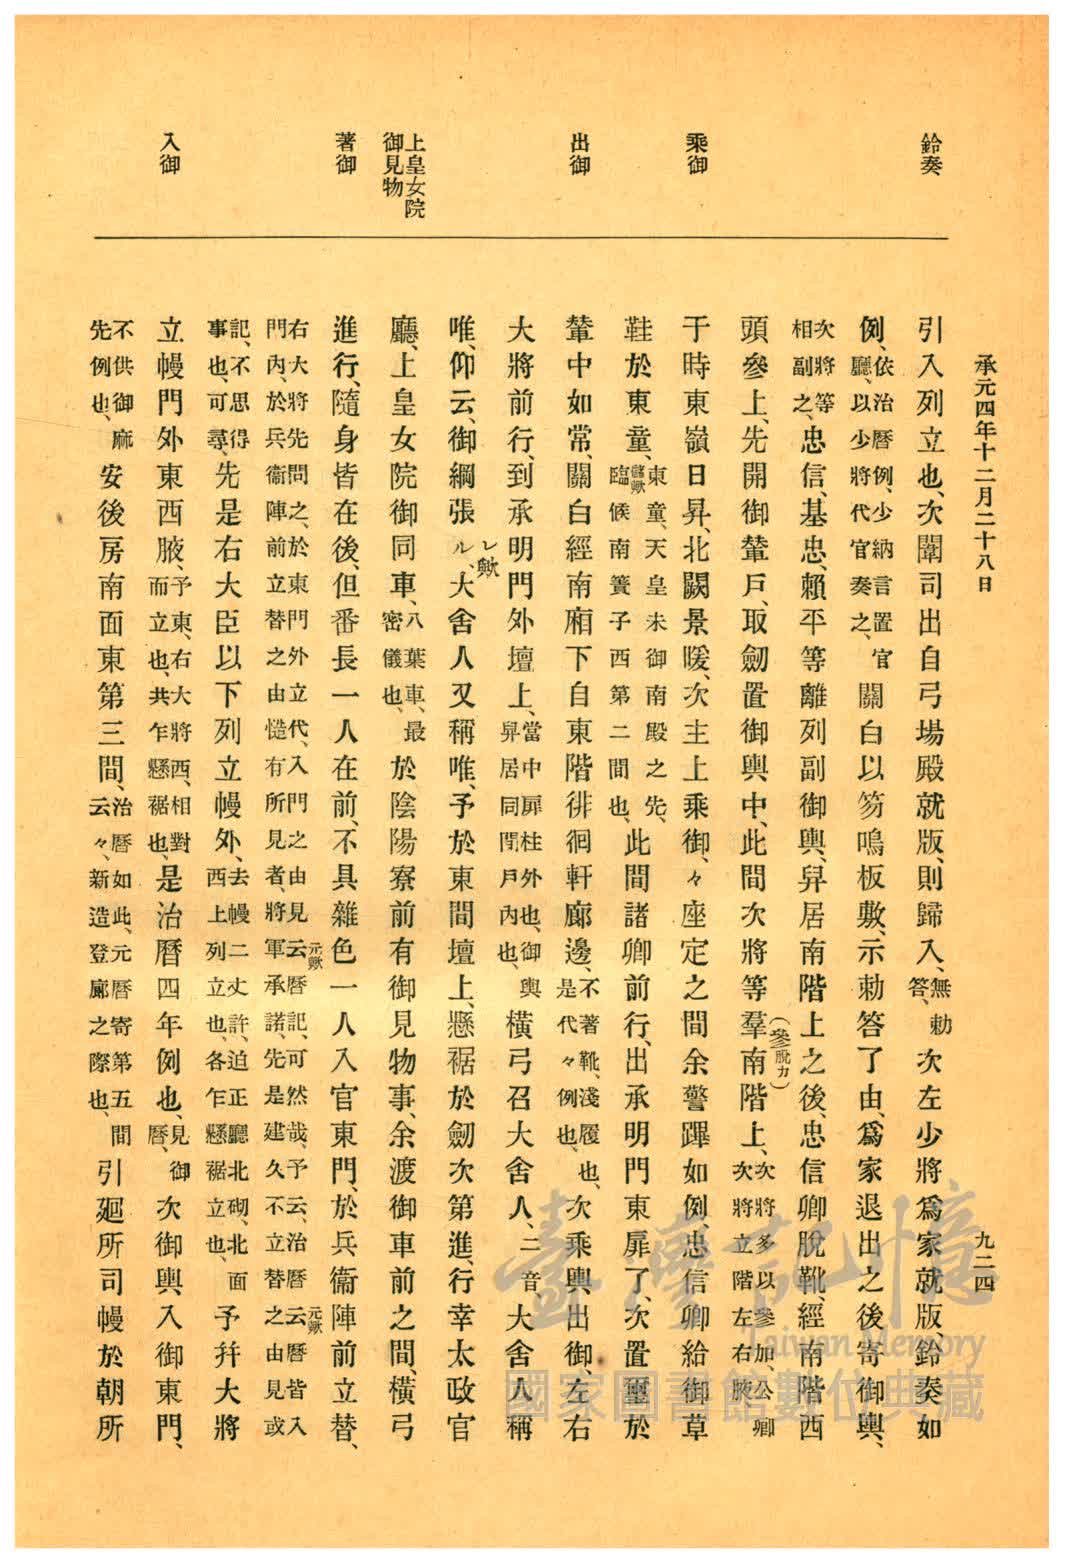 承元四年十二月二十八日
九二四
鈴奏
乘御
出御
上皇女院
御見物
著御
入御
引入列立也、次闈司出自弓場殿就版、則歸入、無勅答、次左少將爲家就版、鈴奏如
例、依治曆例、少納言置官廳、以少將代官奏之、關白以笏鳴板敷、示勅答了由、爲家退出之後寄御輿、
次將等相副之、忠信、基忠、賴平等離列副御輿、舁居南階上之後、忠信卿脫靴、經南階西
頭參上、先開御輦戶、取劒置御輿中、此間次將等羣南階上、(參脫カ)次將多以參加、公卿次將立階左右腋、
于時東嶺日昇、北闕景暖、次主上乘御、々座定之間余警蹕如例、忠信卿給御草
鞋於東童、東童、天皇未御南殿之先、臨候南簀子西第二間也、此間諸卿前行、出承明門東扉了、次置璽於
輦中如常、關白經南廂下自東階徘徊軒廊邊、不著靴、淺履也、是代々例也、次乘輿出御、左右
大將前行、到承明門外壇上、當中扉柱外也、御輿舁居同間戶內也、橫弓召大舍人、二音、大舍人稱
唯、仰云、御綱張ル、レ歟大舍人又稱唯、予於東間壇上、懸裾於劒次第進、行幸太政官
廳、上皇女院御同車、八葉車、最密儀也、於陰陽寮前有御見物事、余渡御車前之間、橫弓
進行、隨身皆在後、但番長一人在前、不具雜色一人入官東門、於兵衞陣前立替、
右大將先問之、於東門外立代、入門之由見云曆記、可然哉、予云、治曆云曆皆入元歟元歟
門內、於兵衞陣前立替之由慥有所見者、將軍承諾、先是建久不立替之由見或
記、不思得事也、可尋、先是右大臣以下列立幔外、去幔二丈許、迫正廳北砌、北面西上列立也、各乍懸裾立也、予幷大將
立幔門外東西腋、予東、右大將西、相對而立也、共乍懸裾也、是治曆四年例也、見御曆、次御輿入御東門、
不供御麻先例也、安後房南面東第三間、治曆如此、元曆寄第五間云々、新造登廊之際也、引廻所司幔於朝所